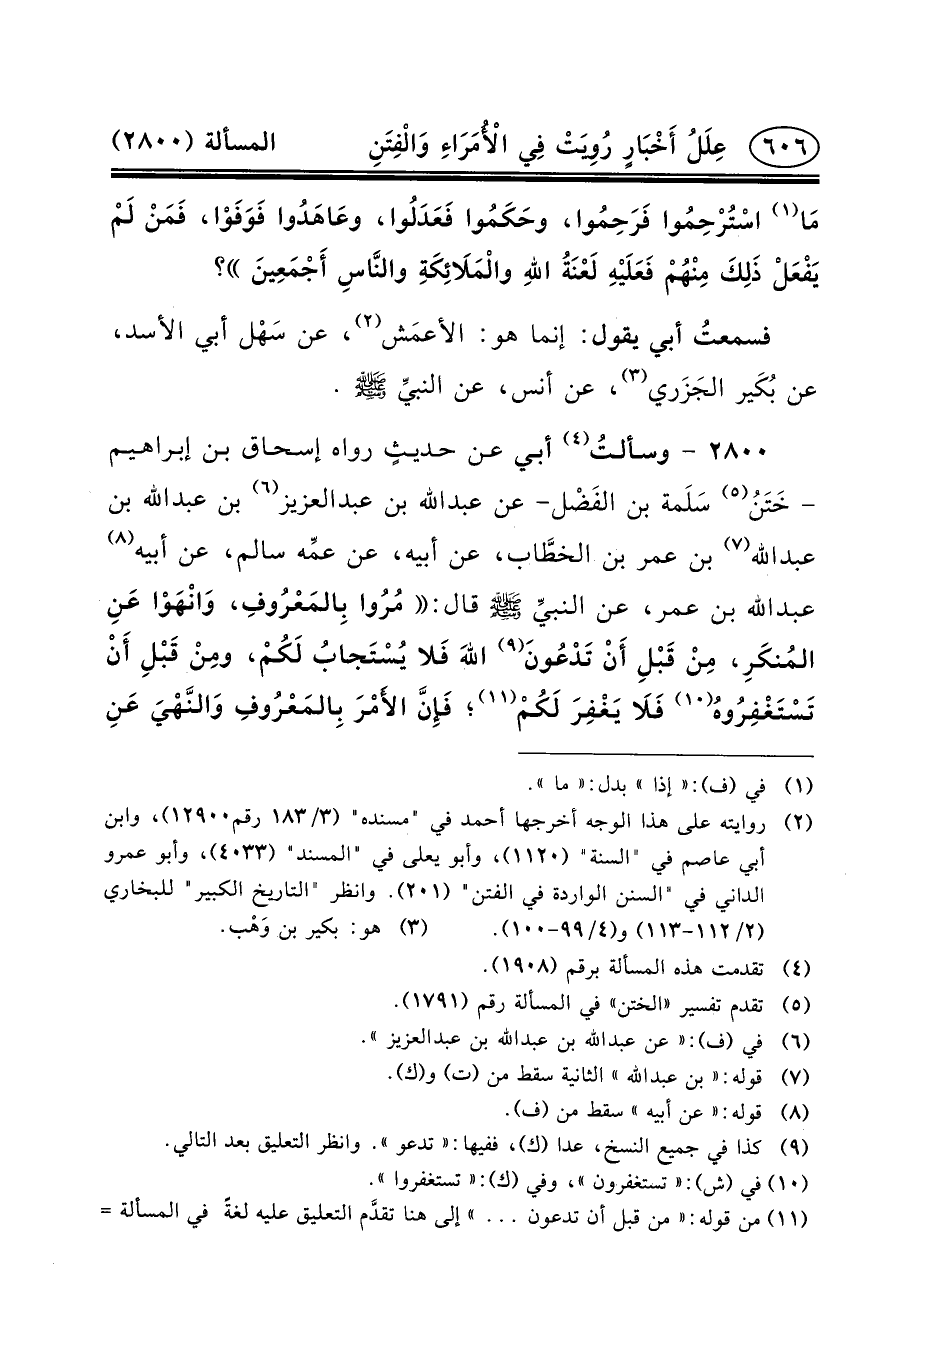 ٦٠٦ عِلَلُ أَخْبَارٍ رُوِيَتْ فِي الْأُمَرَاءِ وَالْفِتَنِ المسألة (٢٨٠٠)
مَا(١) اسْتُرْحِمُوا فَرَحِمُوا، وحَكَمُوا فَعَدَلُوا، وعَاهَدُوا فَوَفَوْا، فَمَنْ لَمْ
يَفْعَلْ ذَلِكَ مِنْهُمْ فَعَلَيْهِ لَعْنَةُ اللهِ والْمَلَائِكَةِ والنَّاسِ أَجْمَعِينَ »؟
فسمعتُ أبي يقول: إنما هو: الأعمَش(٢)، عن سَهْل أبي الأسد،
عن بُكَير الجَزَري(٣)، عن أنس، عن النبيِّ ﷺ .
٢٨٠٠ - وسألتُ(٤) أبي عن حديثٍ رواه إسحاق بن إبراهيم
- خَتَنُ(٥) سَلَمة بن الفَضْل- عن عبدالله بن عبدالعزيز(٦) بن عبدالله بن
عبدالله(٧) بن عمر بن الخطَّاب، عن أبيه، عن عمِّه سالم، عن أبيه(٨)
عبدالله بن عمر، عن النبيِّ ﷺ قال:« مُرُوا بِالمَعْرُوفِ، وَانْهَوْا عَنِ
المُنكَرِ، مِنْ قَبْلِ أَنْ تَدْعُونَ(٩) اللهَ فَلا يُسْتَجابُ لَكُمْ، ومِنْ قَبْلِ أَنْ
تَسْتَغْفِرُوهُ(١٠) فَلَا يَغْفِرَ لَكُمْ(١١)؛ فَإِنَّ الأَمْرَ بِالمَعْرُوفِ وَالنَّهْيَ عَنِ
(١) في (ف):« إذا » بدل:« ما ».
(٢) روايته على هذا الوجه أخرجها أحمد في "مسنده" (٣/ ١٨٣ رقم١٢٩٠٠)، وابن
أبي عاصم في "السنة" (١١٢٠)، وأبو يعلى في "المسند" (٤٠٣٣)، وأبو عمرو
الداني في "السنن الواردة في الفتن" (٢٠١). وانظر "التاريخ الكبير" للبخاري
(٢/ ١١٢-١١٣) و(٤/ ٩٩-١٠٠). (٣) هو: بكير بن وَهْب.
(٤) تقدمت هذه المسألة برقم (١٩٠٨).
(٥) تقدم تفسير «الختن» في المسألة رقم (١٧٩١).
(٦) في (ف):« عن عبدالله بن عبدالله بن عبدالعزيز ».
(٧) قوله:« بن عبدالله » الثانية سقط من (ت) و(ك).
(٨) قوله:« عن أبيه » سقط من (ف).
(٩) كذا في جميع النسخ، عدا (ك)، ففيها:« تدعو ». وانظر التعليق بعد التالي.
(١٠) في (ش):« تستغفرون »، وفي (ك):« تستغفروا ».
(١١) من قوله:« من قبل أن تدعون ... » إلى هنا تقدَّم التعليق عليه لغةً في المسألة =